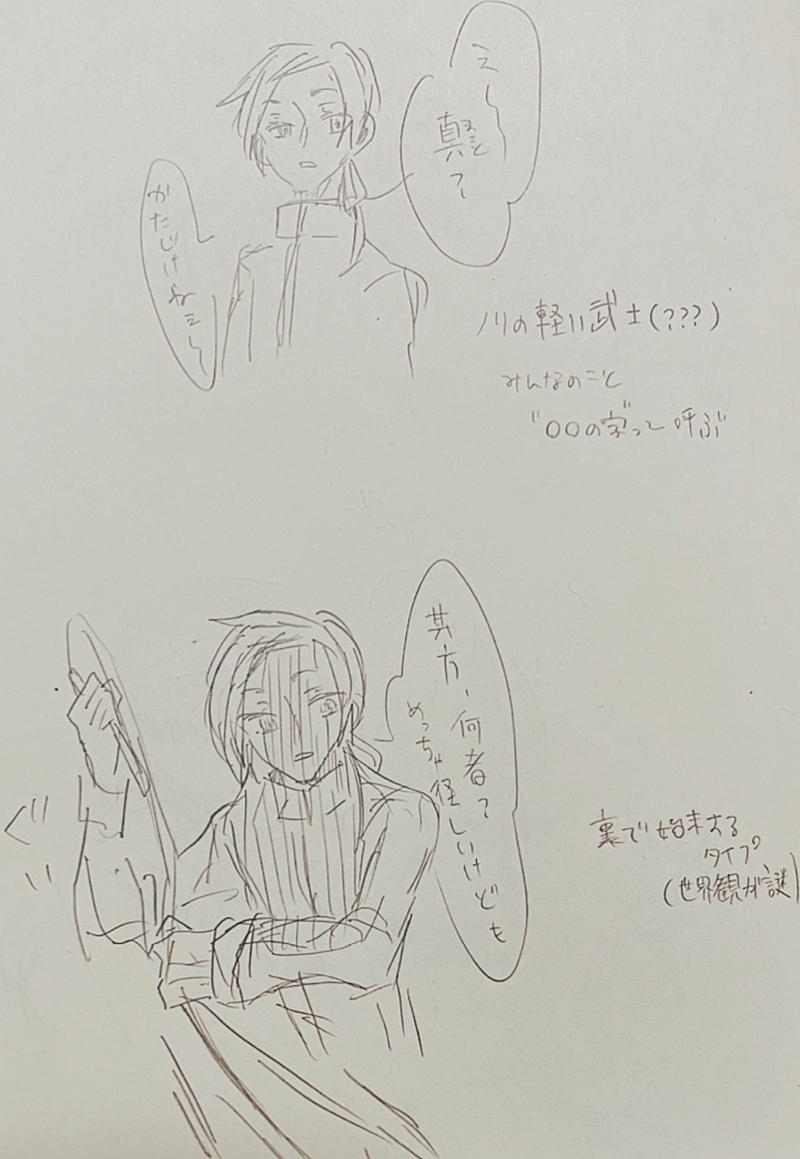 えー
真て
かたじけねえ〜
ノリの軽い武士(???)
みんなのこと
"〇〇の字"って呼ぶ
其方、何者て
めっちゃ怪しいけども
ぐ
い
裏で始末する
タイプ
(世界観が謎)